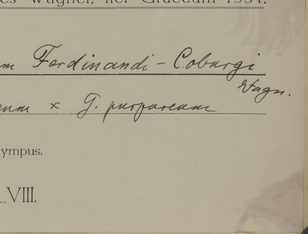 es Wagner, iter Graecum 1934.
m Ferdinandi - Coburgi
Wagn.
eum x G. purpureum
ympus.
VIII.